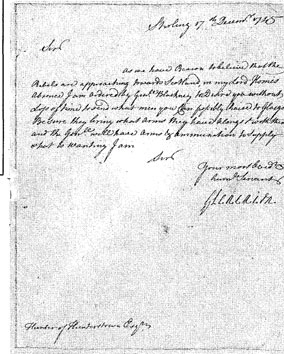 Sterling 17th Decemr 1745
Sir
as we have Reason to believe that the
Rebels are approaching towards Scotland in my Lord Homes
absence I am ordered by Genll Blackney to desire you without
Loss of time to send what men you Can possibly Raise to Glasgow
Be sure they bring what Arms they have alongst with them
and the Genll will have Arms & ammunition to supply
what is wanting I am
Sir
Your most obedt &
humle Servant
Hunter of Hunterstown Esqr